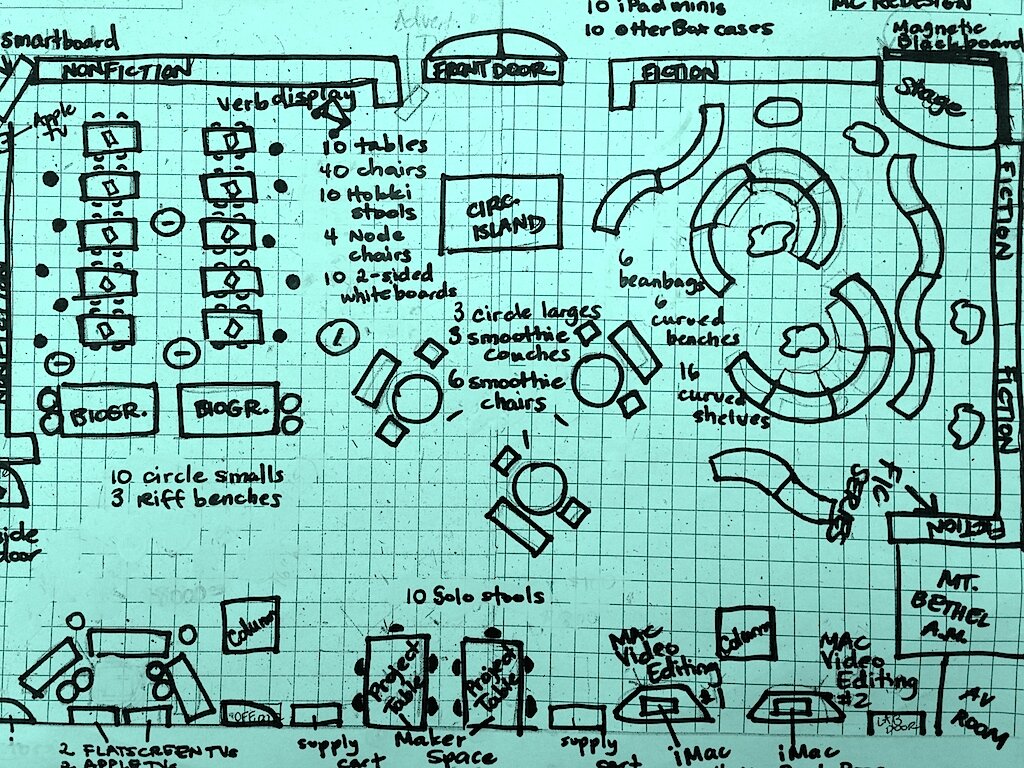 10 iPad minis
10 otterBox cases
MC REDESIGN
smartboard
Magnetic
Blackboard
NONFICTION
FRONT DOOR
FICTION
Stage
Apple
TV
verb display
10 tables
40 chairs
10 Hokki
stools
4 Node
chairs
10 2-sided
whiteboards
CIRC.
ISLAND
FICTION
6
beanbags
6
curved
benches
16
curved
shelves
3 circle larges
3 smoothie
couches
6 smoothie
chairs
FICTION
BIOGR.
BIOGR.
10 circle smalls
3 Riff benches
side
door
FIC
SERIES
FICTION
MT.
BETHEL
10 Solo stools
Column
Project
Table
Project
Table
MAC
Video
Editing
#1
Column
MAC
Video
Editing
#2
AV
ROOM
OFFICE
supply
cart
Maker
Space
supply
cart
iMac
iMac
2 FLATSCREEN TVs
2 APPLE TVs